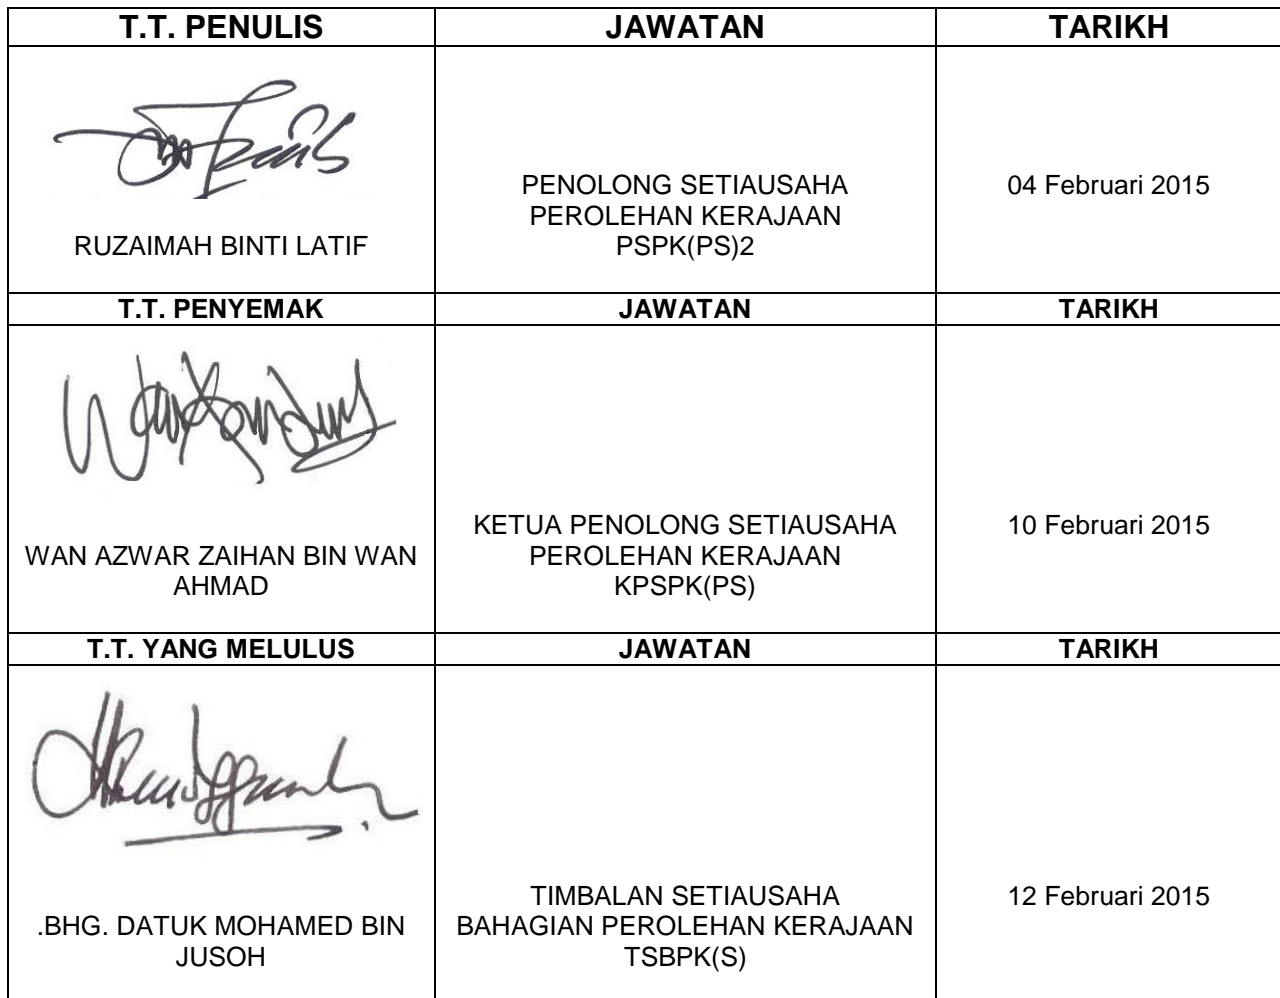 T.T. PENULIS JAWATAN TARIKH
RUZAIMAH BINTI LATIF
PENOLONG SETIAUSAHA
PEROLEHAN KERAJAAN
PSPK(PS)2
04 Februari 2015
T.T. PENYEMAK JAWATAN TARIKH
WAN AZWAR ZAIHAN BIN WAN
AHMAD
KETUA PENOLONG SETIAUSAHA
PEROLEHAN KERAJAAN
KPSPK(PS)
10 Februari 2015
T.T. YANG MELULUS JAWATAN TARIKH
.BHG. DATUK MOHAMED BIN
JUSOH
TIMBALAN SETIAUSAHA
BAHAGIAN PEROLEHAN KERAJAAN
TSBPK(S)
12 Februari 2015